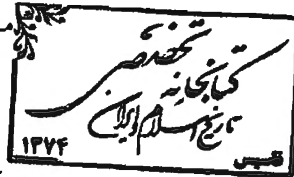 کتابخانه تخصصی
تاریخ اسلام و ایران
۱۳۷۴
قبس